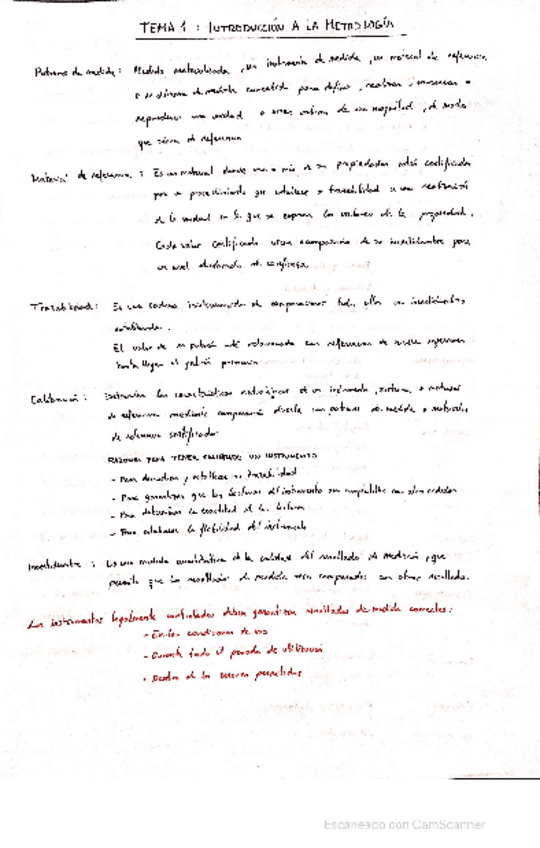 TEMA 1: INTRODUCCIÓN A LA METROLOGÍA
Patrones de medida: Medida materializada, un instrumento de medida, un material de referencia,
o un sistema de medida concebido para definir, realizar, conservar o
reproducir una unidad o varios valores de una magnitud, de modo
que sirva de referencia
Material de referencia: Es un material donde una o más de sus propiedades están certificadas
por un procedimiento que establece su trazabilidad a una realización
de la unidad en la que se expresan los valores de la propiedad.
Cada valor certificado viene acompañado de su incertidumbre para
un nivel de confianza.
Trazabilidad: Es una cadena ininterrumpida de comparaciones todas ellas con incertidumbres
El valor de un patrón está relacionado con referencias de nivel superior
hasta llegar al patrón primario
Calibración: las características metrológicas de un instrumento, sistema, o material
de referencia mediante comparación directa con patrones de medida o materiales
de referencia certificados
RAZONES PARA TENER CALIBRADO UN INSTRUMENTO
- Para demostrar y establecer su trazabilidad
- Para garantizar que las lecturas del instrumento son compatibles con otras medidas
- Para determinar la exactitud de la lectura
- Para establecer la fiabilidad del instrumento
Incertidumbre: Es una medida cuantitativa de la calidad del resultado de medición, que
permite que los resultados de medida sean comparados con otros resultados.
Los instrumentos legalmente controlados deben garantizar resultados de medida correctos:
- En las condiciones de uso
- Durante todo el periodo de utilización
- Dentro de los errores permitidos
Escaneado con CamScanner